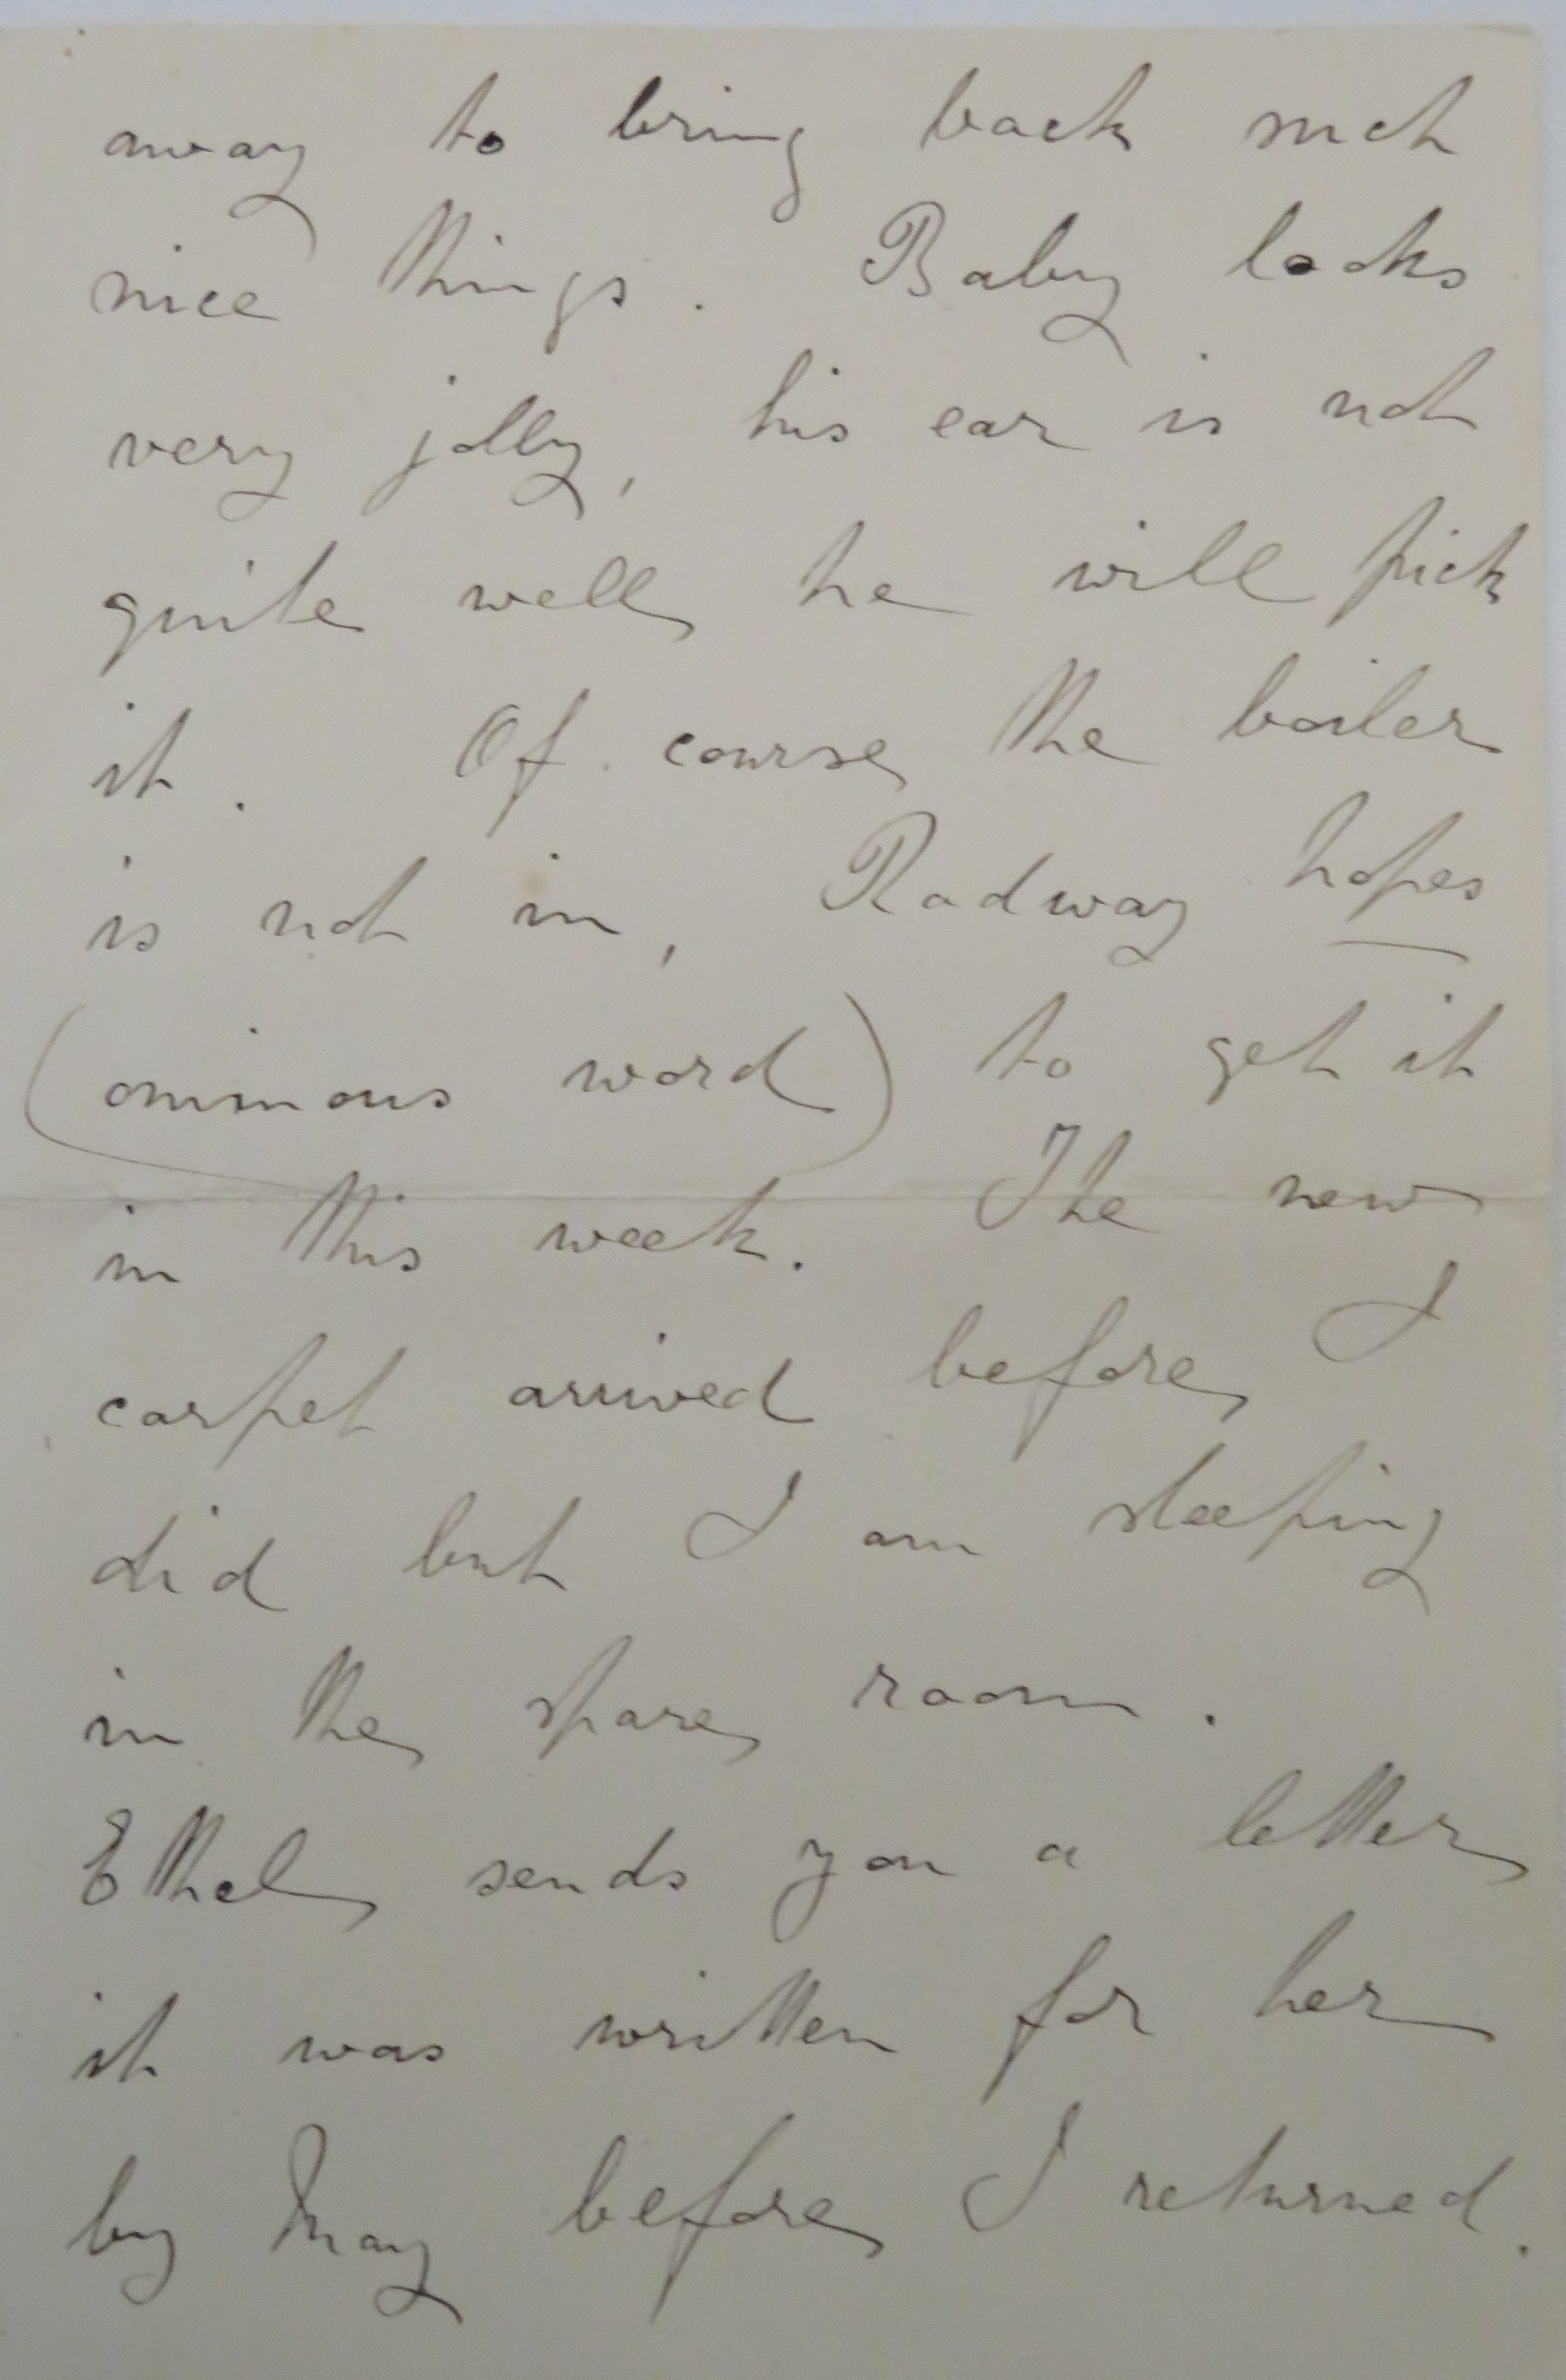 away to bring back such
nice things. Baby looks
very jolly, his ear is not
quite well he will pick
it. Of course the boiler
is not in, Radway hopes
(ominous word) to get it
in this week. The new
carpet arrived before I
did but I am sleeping
in the spare room.
Ethel sends you a letter
it was written for her
by May before I returned.